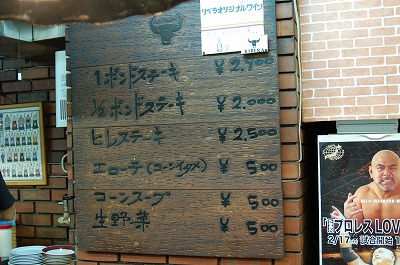 リベラオリジナルワイン
RIBERA
1ポンドステーキ ¥2,700
1/2ポンドステーキ ¥2,000
ヒレステーキ ¥2,500
エローテ(コーンイタメ) ¥500
コーンスープ ¥500
生野菜 ¥500
プロレスLOVE
2/17 試合開始